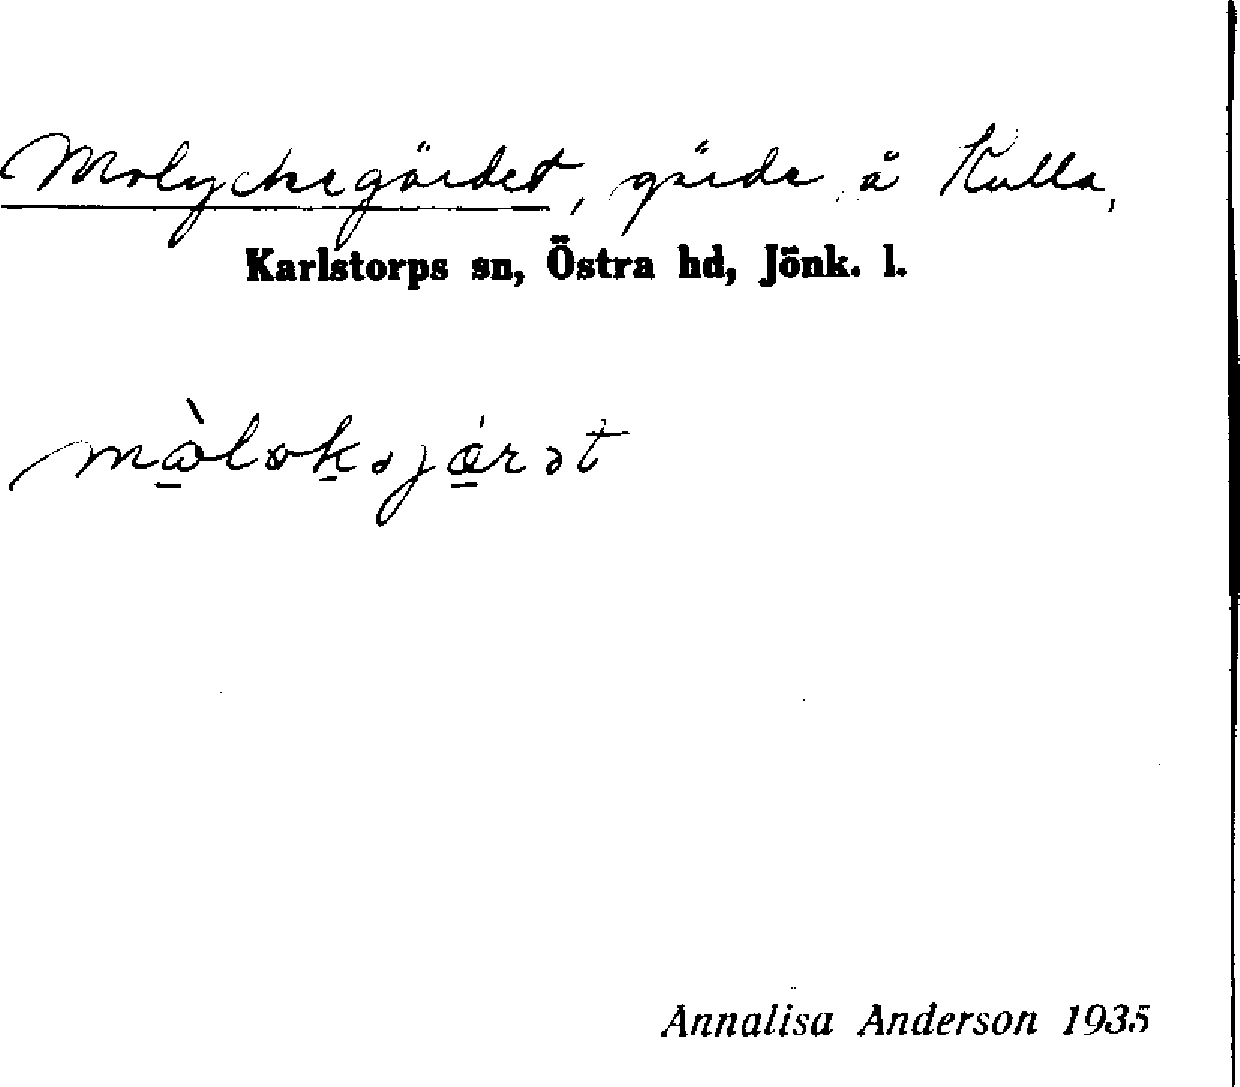 Molyckegärdet, gärde å Kulla,
Karlstorps sn, Östra hd, Jönk. l.
Annalisa Anderson 1935